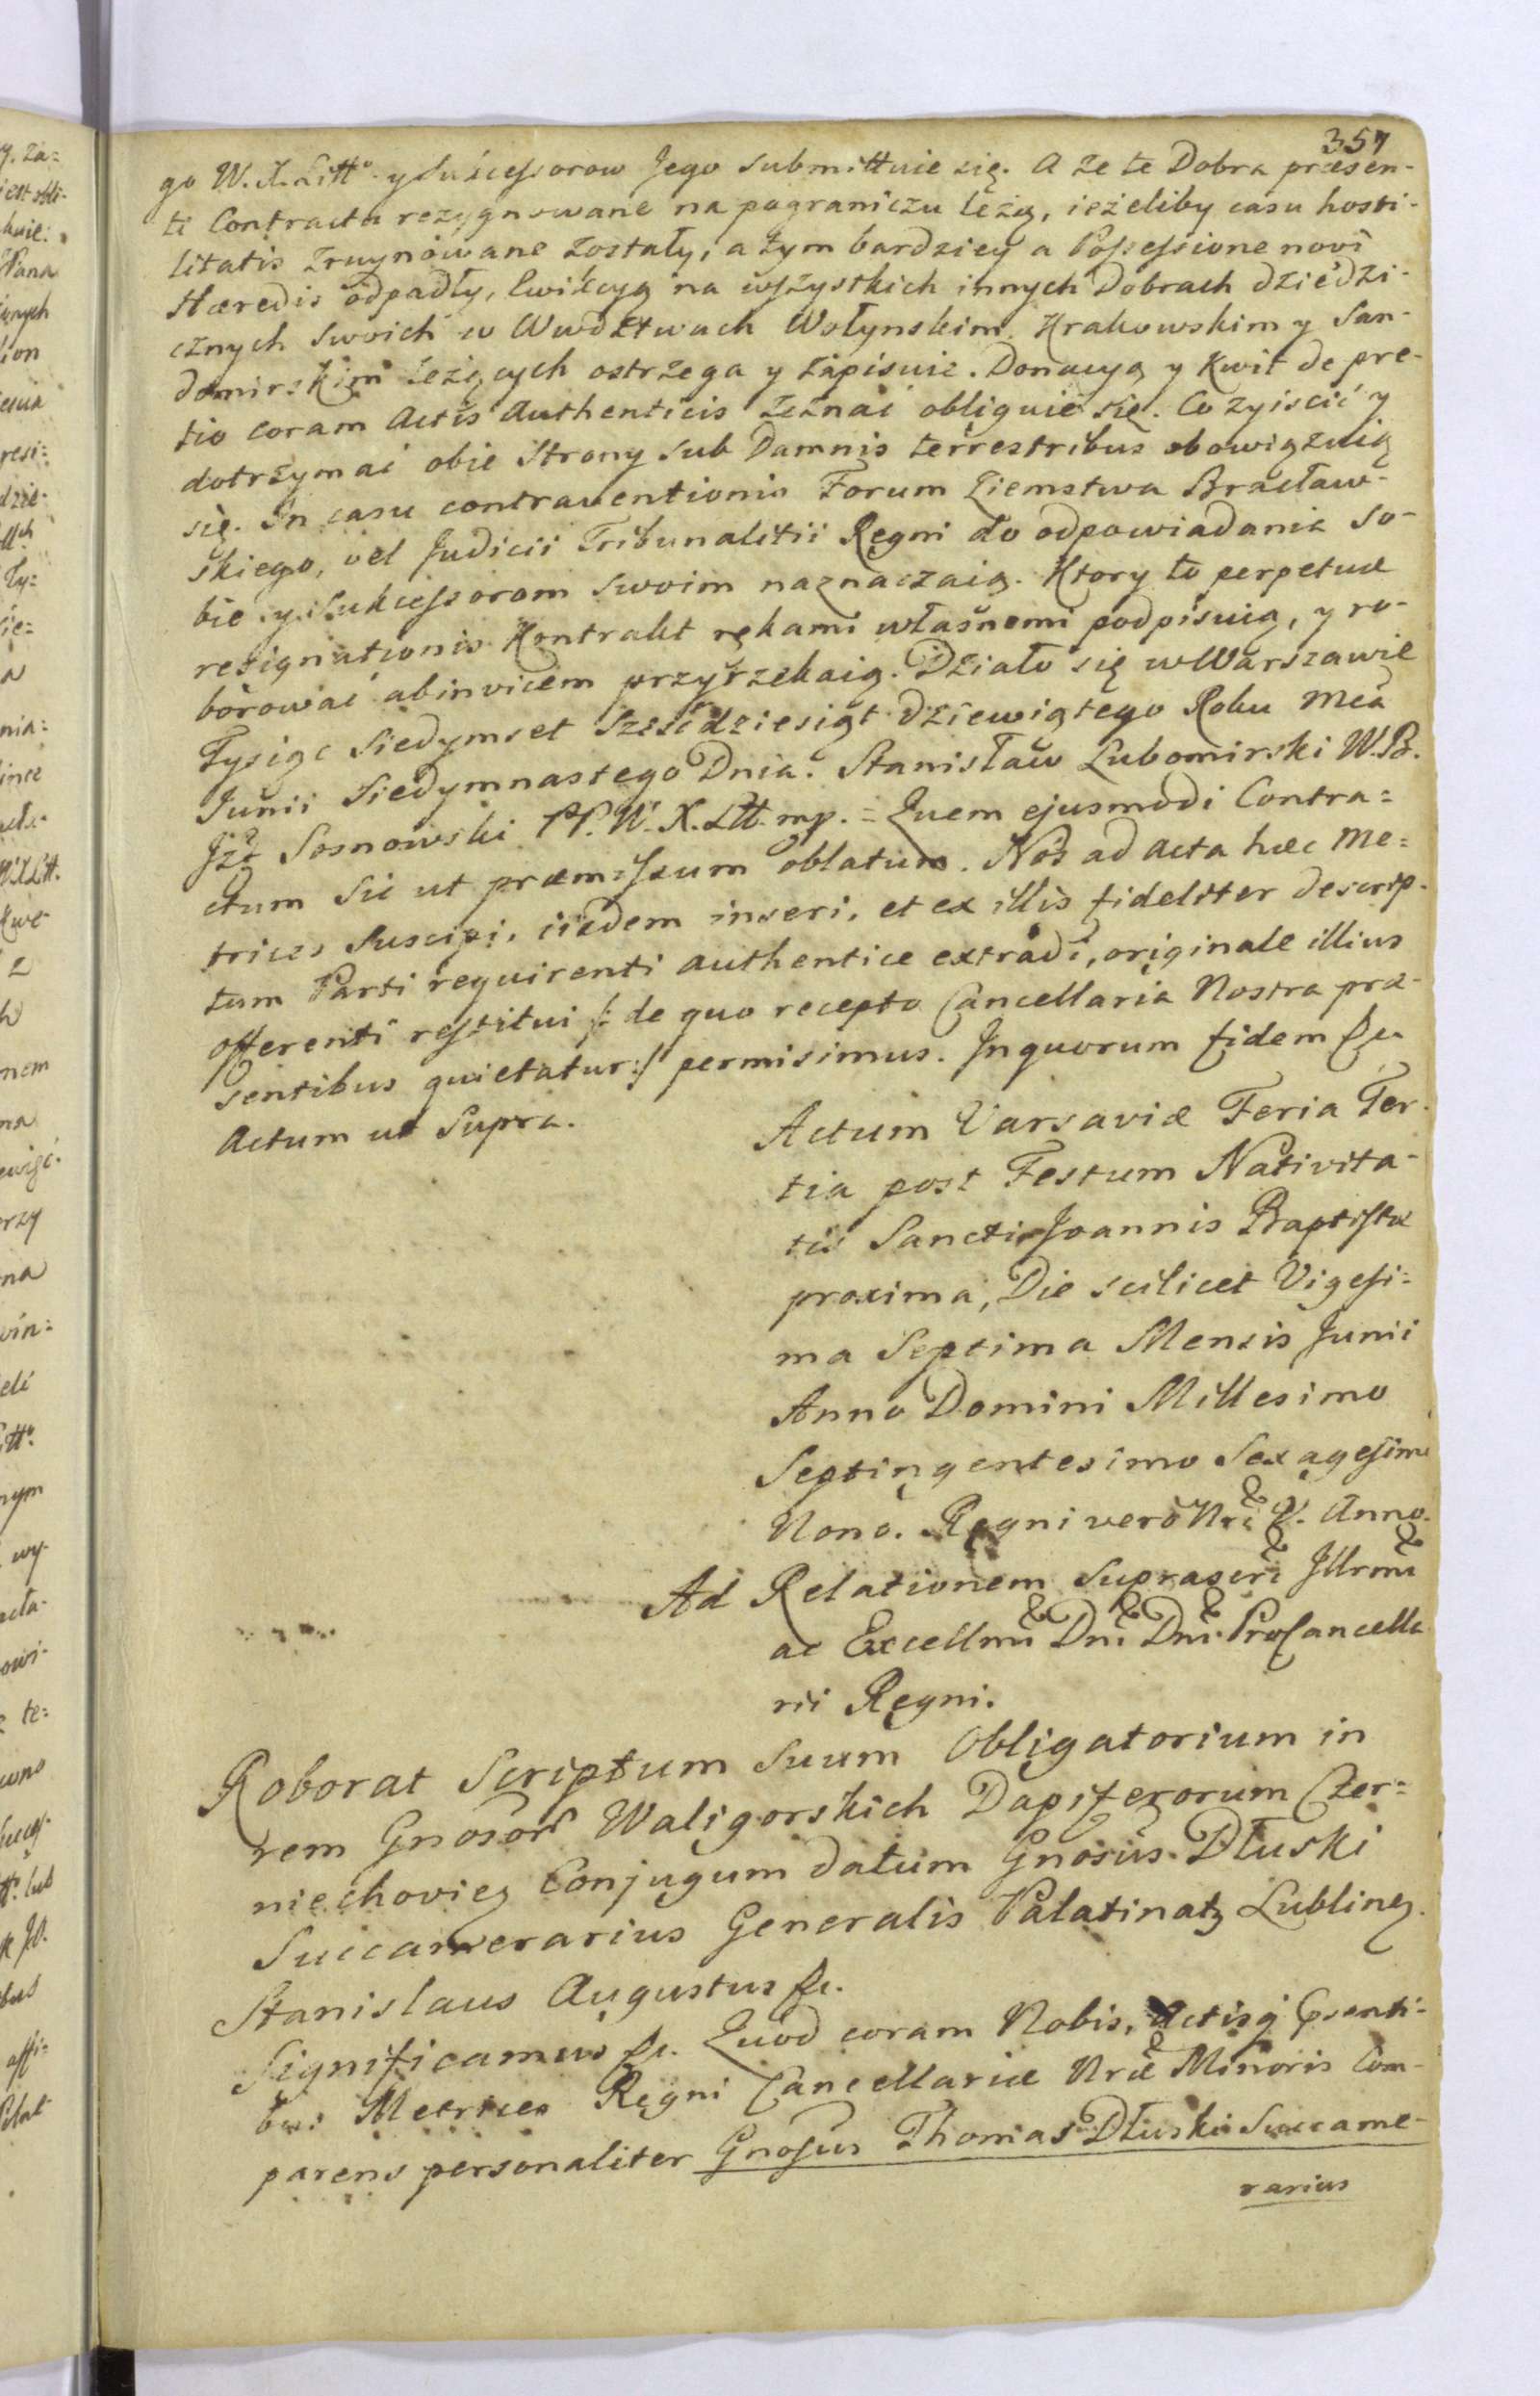 357
go W. X. Litt° y Sukcessorow Jego submittuie się. A że te Dobra præsen-
ti Contractu rezygnowane na pograniczu leżą, ieżeliby casu hosti-
litatis zruynowane zostały, a tym bardziey a Possessione novi
Hæredis odpadły, Ewikcyą na wszystkich innych Dobrach dziedzi-
cznych swoich w Wwdztwach Wołynskim, Krakowskim y San-
domirskim leżących ostrzega y zapisuie. Donacyą y Kwit de pre-
tio coram Actis Authenticis zeznać obliguie się. Co zyiscić y
dotrzymać obie Strony sub Damnis terrestribus obowiązuią
się. In casu contraventionis Forum Ziemstwa Bracław-
skiego, vel Judicii Tribunalitii Regni do odpowiadania so-
bie y Sukcessorom swoim naznaczaią. Ktory to perpetuæ
resignationis Kontrakt rękami własnemi podpisuią, y ro-
borować abinvicem przyrzekaią. Działo się w Warszawie
Tysiąc Siedymset Sześćdziesiąt dziewiątego Roku Mca
Junii Siedymnastego Dnia. Stanisław Lubomirski W. B.
Jzt Sosnowski P. W. X. Ltt. mp. = Quem ejusmodi Contra=
ctum Sic ut præmissum oblatum. Nos ad Acta hæc Me=
trices Suscipi, iisdem inseri, et ex illis fideliter descrip-
tum Parti requirenti authentice extradi, originale illius
offerenti restitui /: de quo recepto Cancellaria Nostra præ-
sentibus quietatur :/ permisimus. In quorum fidem &c
Actum ut Supra.
Actum Varsaviæ Feria Ter-
tia post Festum Nativita-
tis Sancti Joannis Baptistæ
proxima, Die scilicet Vigesi=
ma Septima Mensis Junii
Anno Domini Millesimo
Septingentesimo Sexagesimo
Nono. Regni vero Nri V. Anno.
Ad Relationem Suprascri Illrmi
ac Excellmi Dni Dni ProCancella
rii Regni.
Roborat Scriptum Suum Obligatorium in
rem Gnosor Waligorskich Dapiferorum Czer=
niechovien Conjugum datum Gnosus Dłuski
Succamerarius Generalis Palatinatq Lublineq.
Stanislaus Augustus &c.
Significamus &c. Quod coram Nobis, Actisq Psenti-
bus Metrices Regni Cancellariæ Nræ Minoris Com-
parens personaliter Gnosus Thomas Dłuski Succame-
rarius